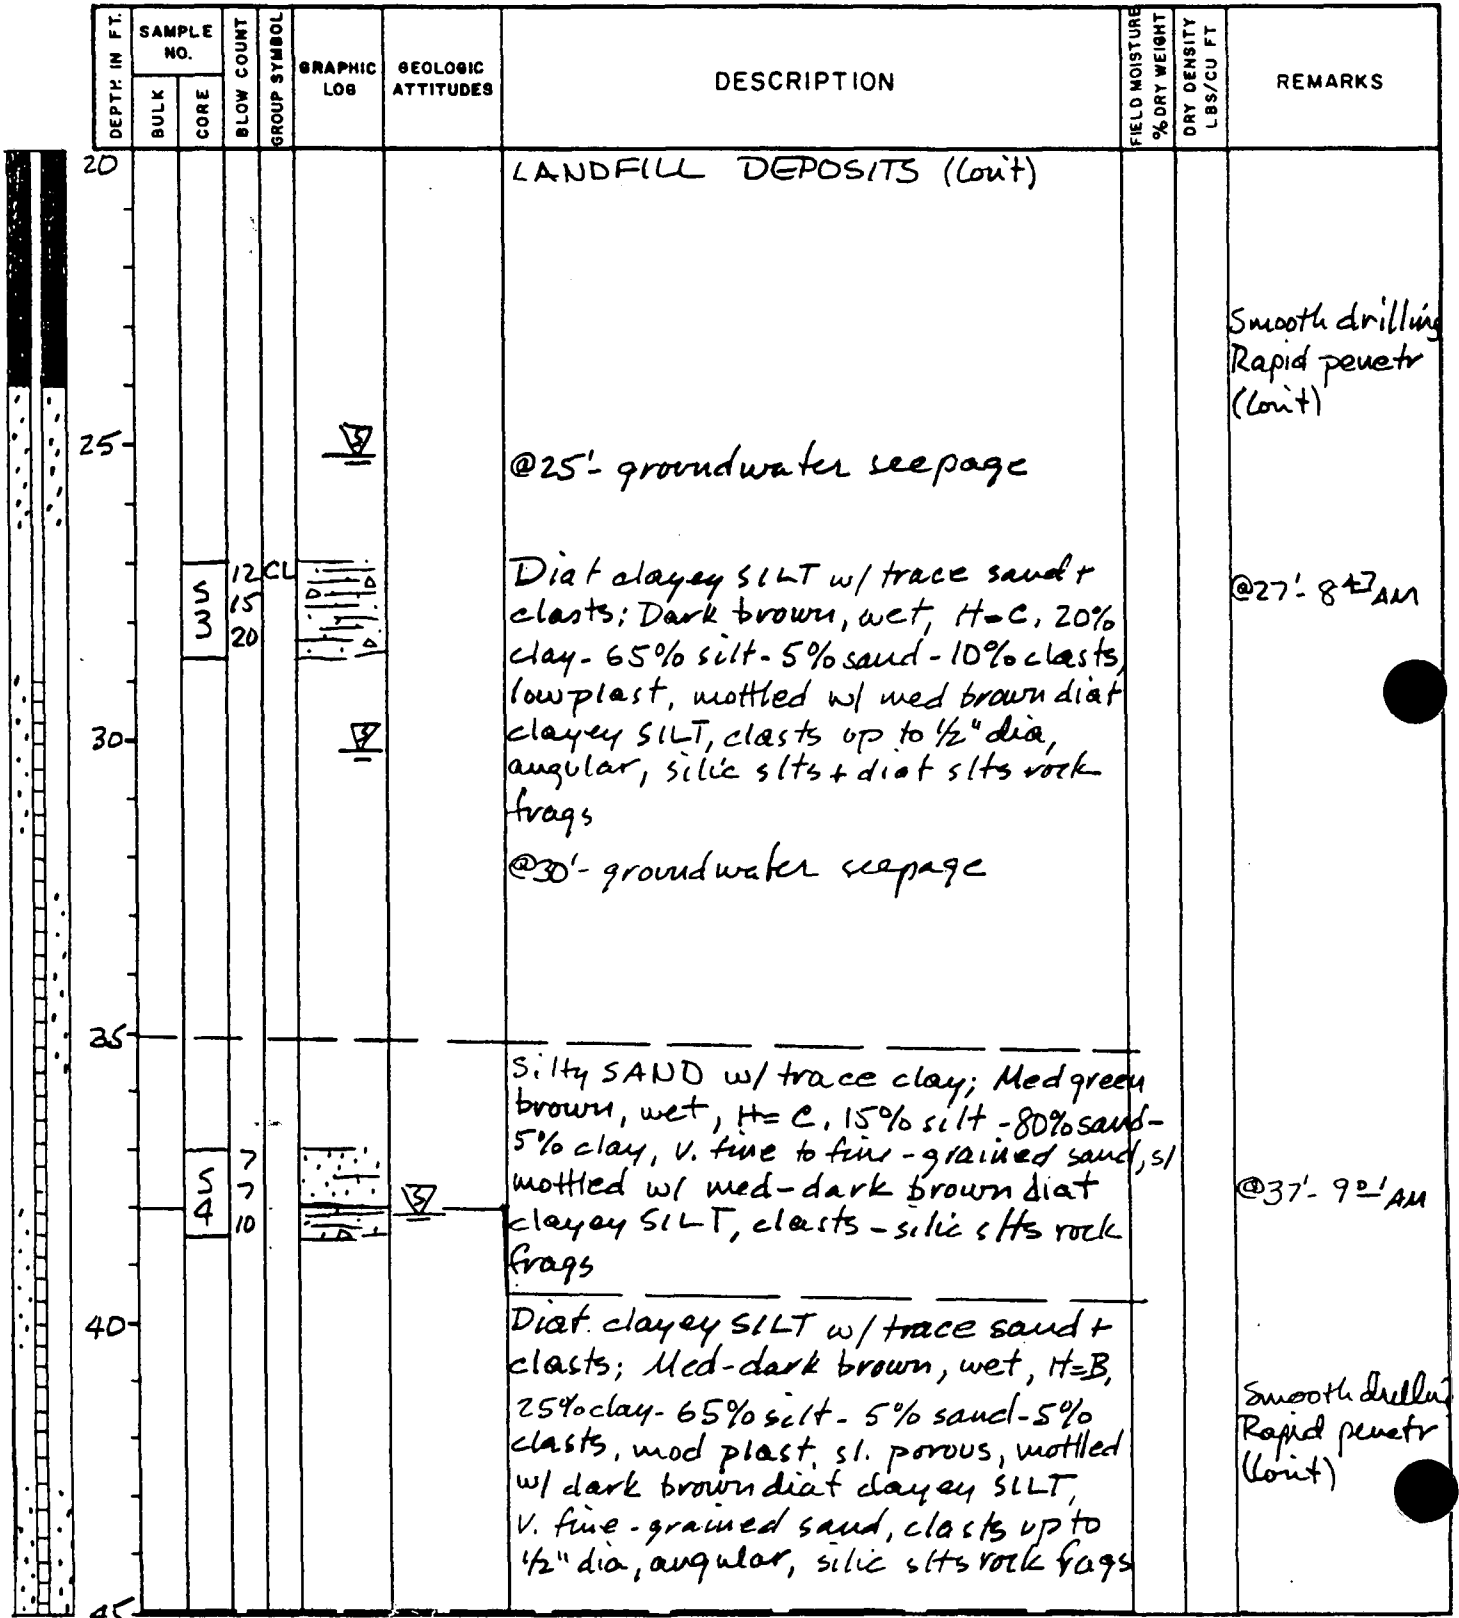 DEPTH IN FT.
SAMPLE NO.
BULK
CORE
BLOW COUNT
GROUP SYMBOL
GRAPHIC LOG
GEOLOGIC ATTITUDES
DESCRIPTION
FIELD MOISTURE % DRY WEIGHT
DRY DENSITY LBS/CU FT
REMARKS
20
LANDFILL DEPOSITS (Con't)
Smooth drilling
Rapid penetr
(Con't)
25
S
@25'- groundwater seepage
S 3
12
15
20
CL
Diat clayey SILT w/ trace sand +
clasts; Dark brown, wet, H=C, 20%
clay - 65% silt - 5% sand - 10% clasts,
low plast, mottled w/ med brown diat
clayey SILT, clasts up to 1/2" dia,
angular, silic slts + diat slts rock
frags
@27'- 8 47 AM
30
S
@30'- groundwater seepage
35
Silty SAND w/ trace clay; Med green
brown, wet, H=C, 15% silt - 80% sand -
5% clay, v. fine to fine-grained sand, sl
mottled w/ med-dark brown diat
clayey SILT, clasts - silic slts rock
frags
S 4
7
7
10
S
@37'- 9 01 AM
40
Diat. clayey SILT w/ trace sand +
clasts; Med-dark brown, wet, H=B,
25% clay - 65% silt - 5% sand - 5%
clasts, mod plast, sl. porous, mottled
w/ dark brown diat clayey SILT,
v. fine-grained sand, clasts up to
1/2" dia, angular, silic slts rock frags
Smooth drillin
Rapid penetr
(Con't)
45